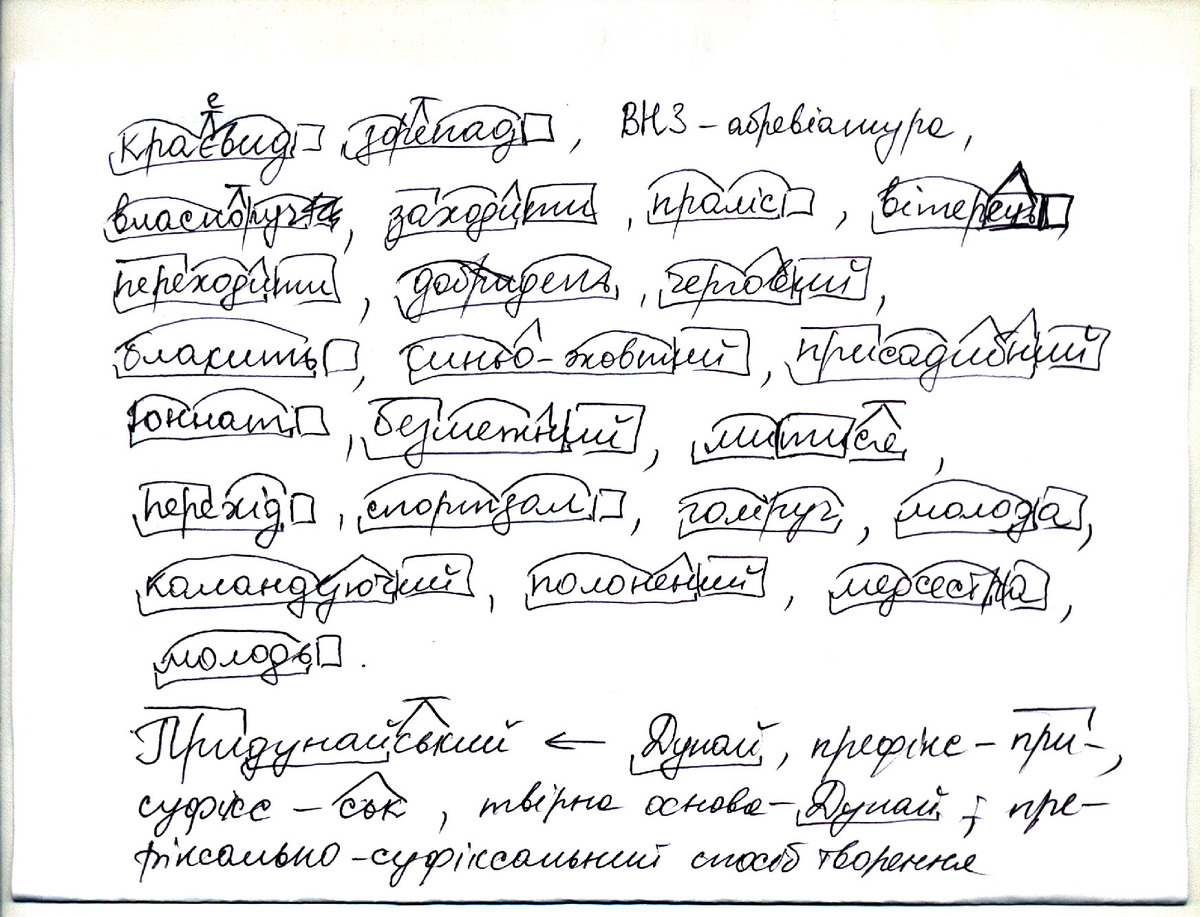 краєвид зорепад, ВНЗ – абревіатура,
власноруч, заходити, праліс, вітерець,
переходити, добридень, черговий,
блакить, синьо-жовтий, присадибний
юннат, безмежний, митися,
перехід, спортзал, голіруч, молода,
командуючий, полонений, медсестра,
молодь.
Придунайський ← Дунай, префікс – при-,
суфікс – ськ, твірна основа – Дунай; пре-
фіксально-суфіксальний спосіб творення